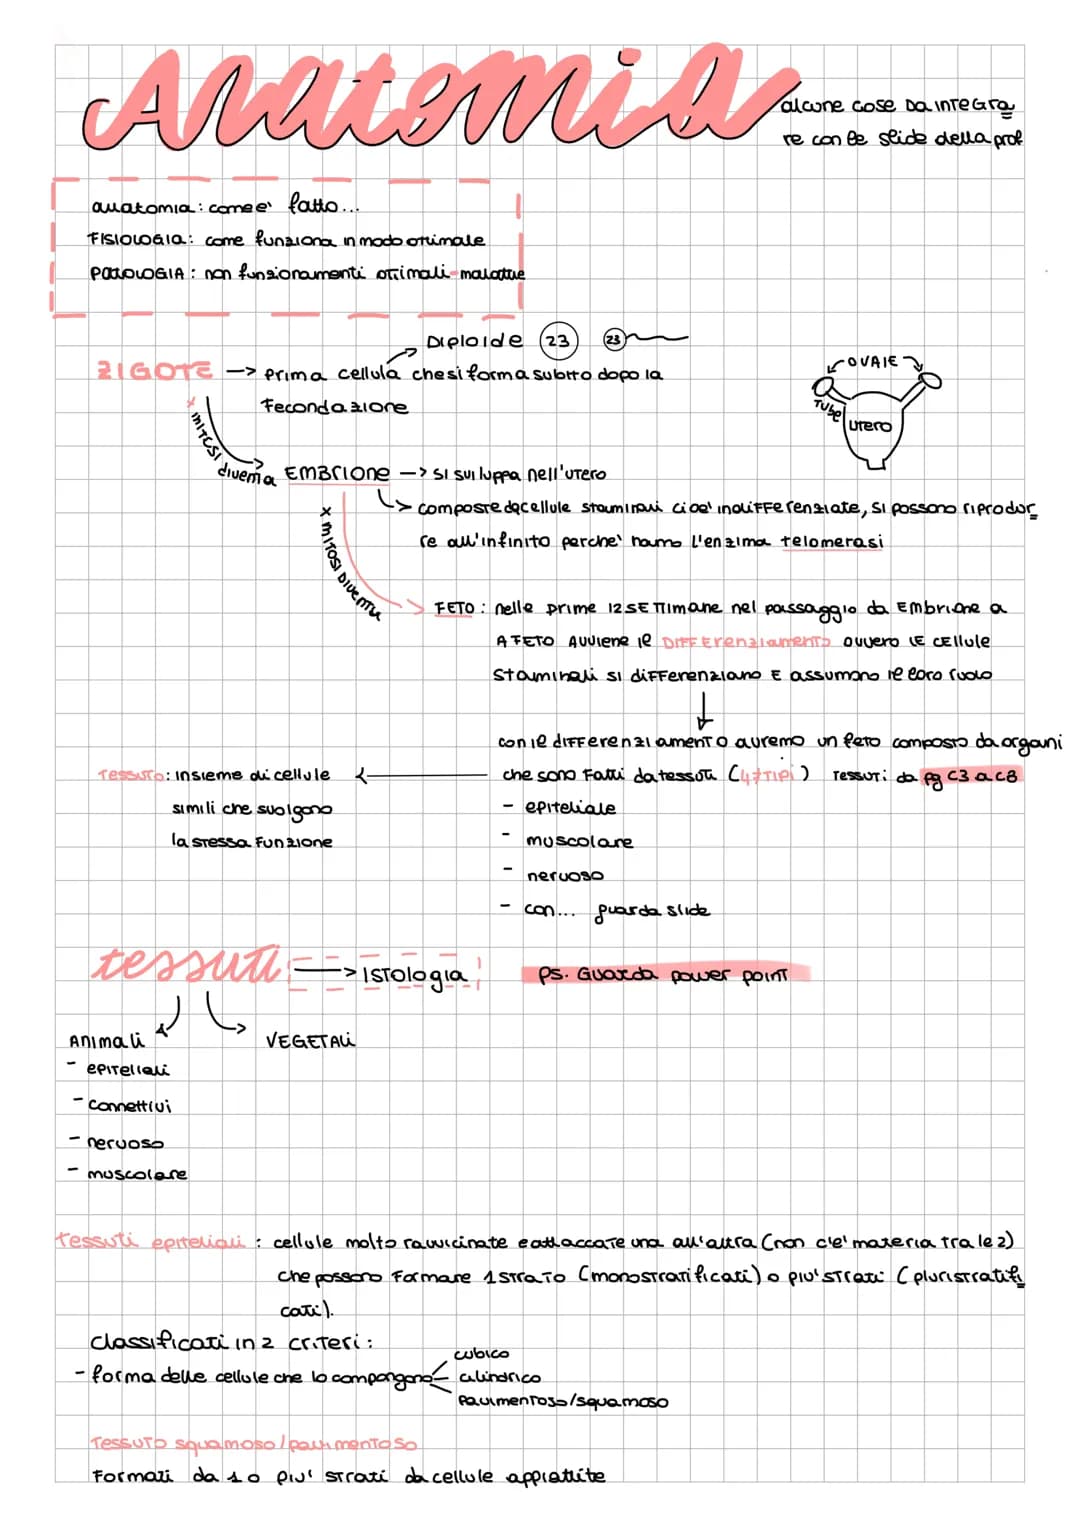 Anatomia
alcune cose da integra
re con le slide della prof
anatomia: come e' fatto...
FISIOLOGIA: come funziona in modo ottimale
PATOLOGIA: non funzionamenti ottimali-malattie
Diploide 23 23
ZIGOTE -> Prima cellula che si forma subito dopo la
Fecondazione
OVAIE
Tube
Utero
x mitosi diventa
EMBRIONE -> si sviluppa nell'utero
-> composte da cellule staminali cioe' indifferenziate, si possono riprodur
re all'infinito perche' hanno l'enzima telomerasi
x mitosi diventa
FETO: nelle prime 12 settimane nel passaggio da Embrione a
A FETO avviene il DIFFerenziamento ovvero le cellule
staminali si differenziano e assumono il loro ruolo
con il differenziamento avremo un feto composto da organi
che sono fatti da tessuti (4≠TIPI) Tessuti da pg C3 a C8
- epiteliale
- muscolare
- nervoso
- con... guarda slide
Tessuto: insieme di cellule
simili che svolgono
la stessa funzione
tessuti -> Istologia
ps. Guarda power point
Animali
- epiteliali
- connettivi
- nervoso
- muscolare
VEGETALi
Tessuti epiteliali: cellule molto ravvicinate e attaccate una all'altra (non c'e' materia tra le 2)
che possono formare 1 strato (monostratificati) o piu' strati (pluristratifi
cati).
Classificati in 2 criteri:
- forma delle cellule che lo compongono
cubico
cilindrico
Pavimentoso/squamoso
Tessuto squamoso/pavimentoso
Formati da 1 o piu' strati da cellule appiattite